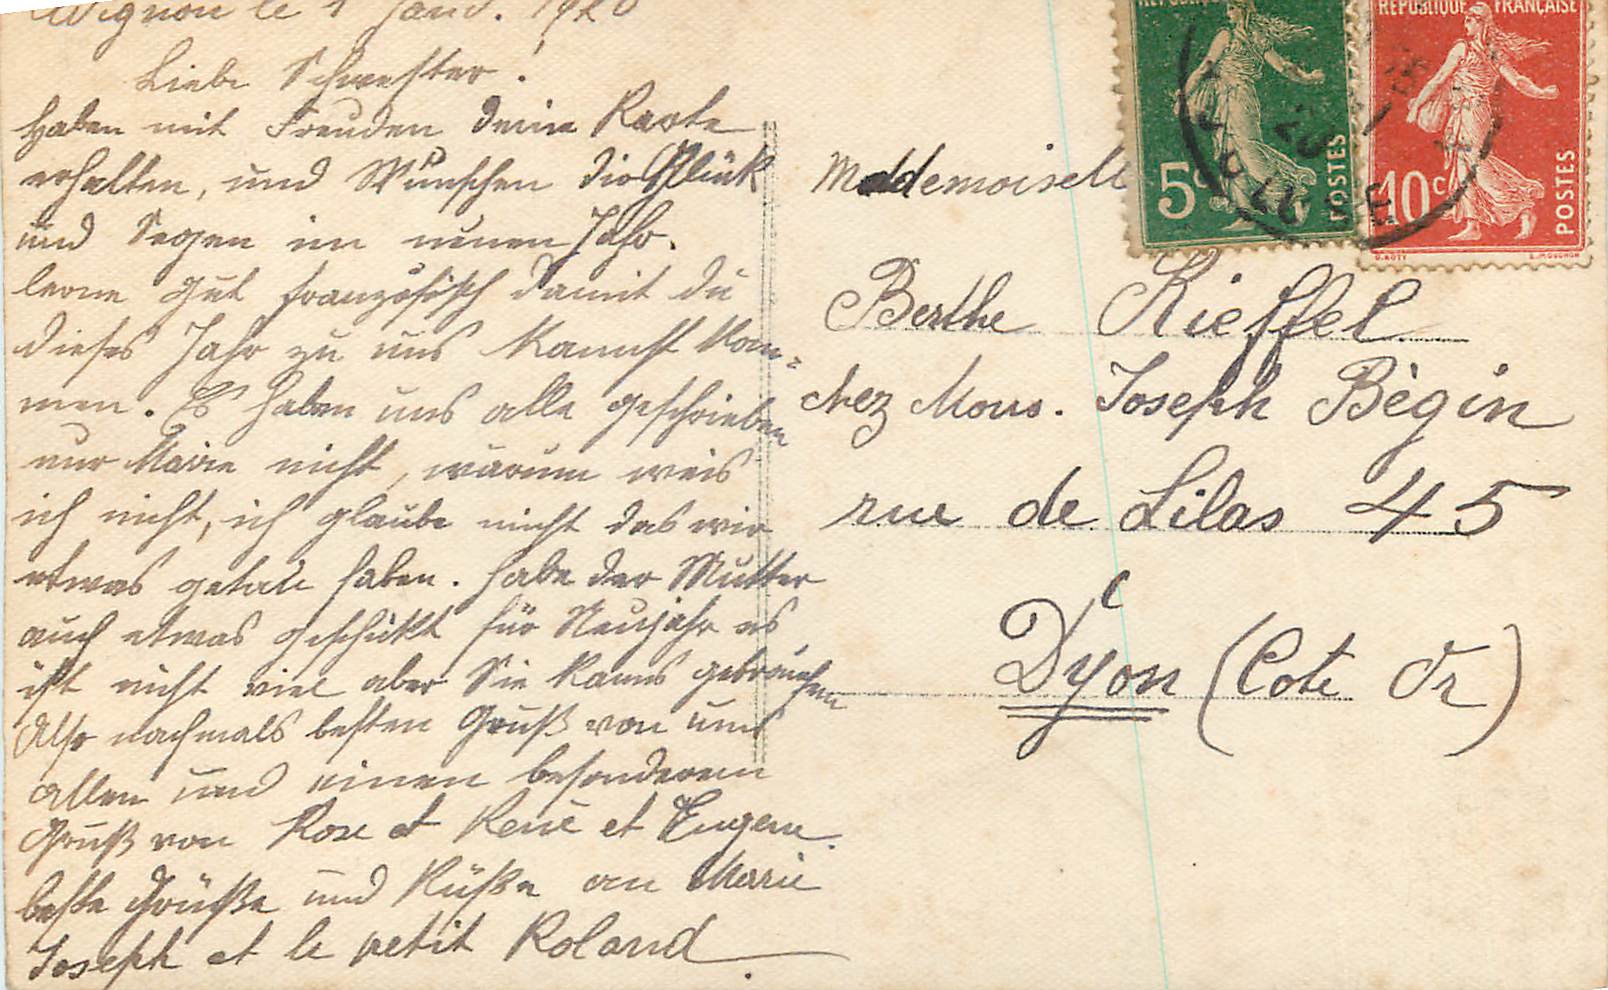 Avignon le 1 Janv. 1920
Liebe Schwester!
Haben mit Freuden deine Karte
erhalten, und Wünschen dir Glük
und Segen im neuen Jahr.
lerne gut französisch damit du
dieses Jahr zu uns kannst kom=
men. Es haben uns alle geschrieben
nur Marie nicht, warum weis
ich nicht, ich glaube nicht das wir
etwas getan haben. habe der Mutter
auch etwas geschükt für Neujahr es
ist nicht viel aber Sie kanns gebrauchen
Also nochmals besten Gruß von uns
allen und einen besonderen
Gruß von Rose et René et Eugene.
beste Grüße und Küße an Marie
Joseph et le petit Roland.
REPUBLIQUE FRANÇAISE
5c
POSTES
10c
POSTES
O. ROTY
E. MOUCHON
Mademoiselle
Berthe Kieffel
chez Mons. Joseph Bègin
rue de Lilas 45
Dyon (Cote Or)